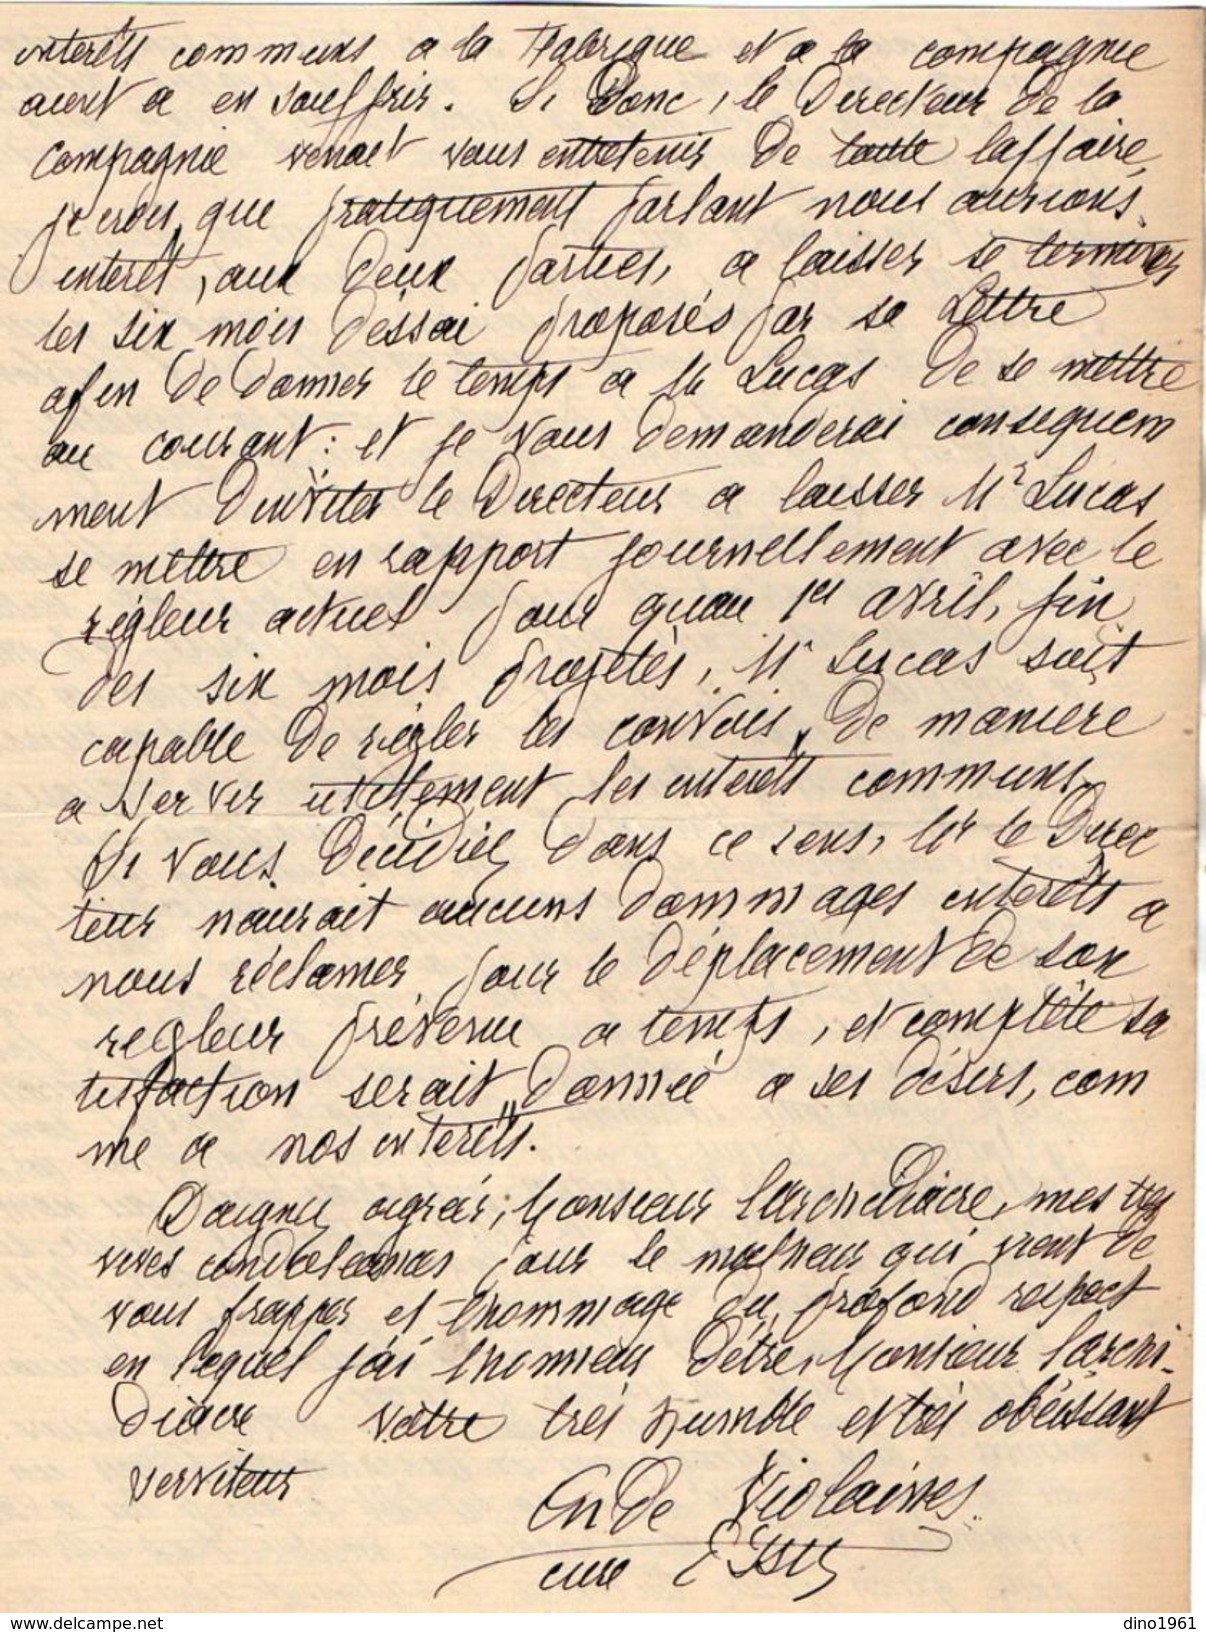 interêts communs a la Fabrique et a la compagnie
aient a en souffrir. Si Donc, le Directeur De la
Compagnie venait vous entretenir De toute laffaire,
je crois, que pratiquement parlant nous aurions
interêt, aux Deux parties, a laisser se terminer
les six mois Dessai proposés par sa Lettre
afin De Donner le temps a Mr Lucas De se mettre
au courant: et je vous Demanderai consequem
ment Dinviter le Directeur a laisser Mr Lucas
se mettre en rapport journellement avec le
règleur actuel pour quau 1er avril, fin
Des six mois projetés, Mr Lucas soit
capable De règler les convois, De maniere
a servir utilement les interêts communs.
Si vous Décidiez Dans ce sens, Mr le Direc
teur naurait aucuns Dommages interêts a
nous réclamer pour le Déplacement De son
regleur prévenu a temps, et complète sa
tisfaction serait Donnée a ses Désirs, com
me a nos interêts.
Daignez agréer, Monsieur l'archidiacre, mes très
vives condoléances pour le malheur qui vient De
vous frapper et lhommage Du profond respect
en lequel j'ai lhonneur Dêtre, Monsieur larchi-
Diacre votre très humble et très obéissant
serviteur
En De Violaines
cure
dino1961